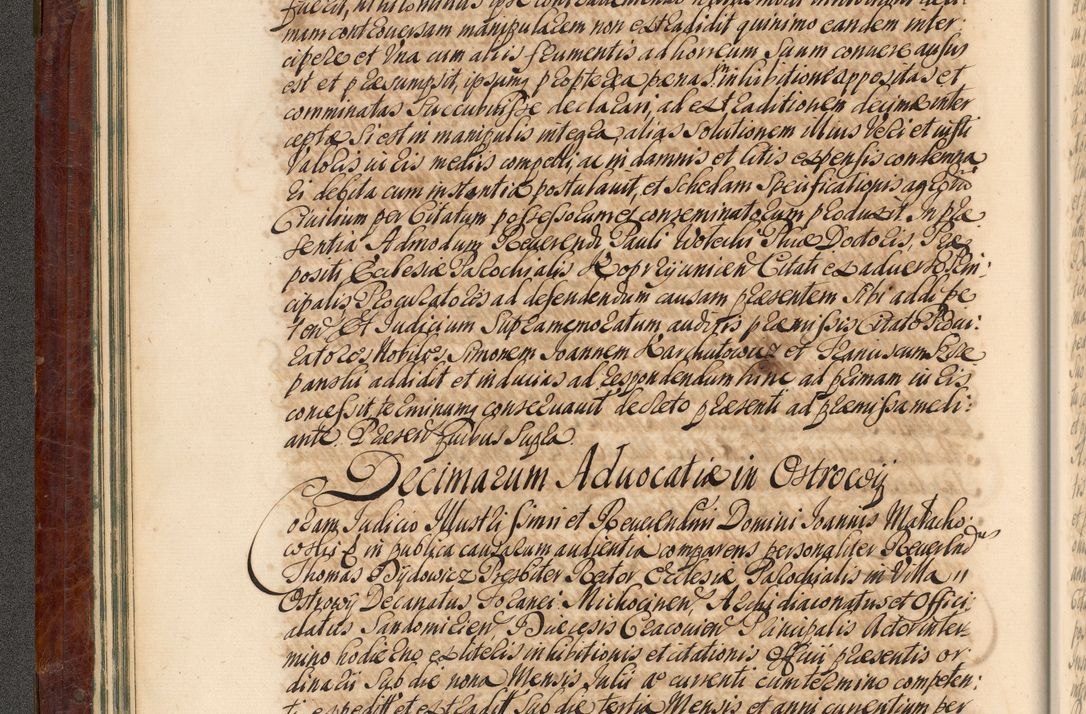 mam controversam manipularem non extradidit quinimo eandem inter:
cipere et Una cum aliis frumentis ad horreum Suum convere ausus
est et præsumpsit, ipsum propterea pænas in inhibitione appositas et
comminatas Succubuisse declarari, ad extraditionem decimæ inter
ceptæ Si est in manipulis integra, alias Solutionem illius Veri et iusti
Valoris iuris mediis compelli, ac in damnis et litis expensis condemna
ri debita cum instantia postulavit, et Schedam Specificationis agrorum
Civilium per Citatum possessorum et conzeminatorum produxit. In præ
sentia Admodum Reverendi Pauli Phiæ Doctoris, Præ
positi Ecclesiæ Parochialis Koprzyvnicen Citati ex adverso Prin:
cipalis Procuratoris ad defendendum causam præsentem Sibi addi pe
ten Et Iudicium Supramemoratum auditis præmissis Citato Procu:
ratores Nobiles Simonem Joannem Karchutowicz et Franciscum
addidit et inducias ad respondendum hinc ad primam iuris
concessit, terminum conservavit decreto præsenti ad præmissa medi:
ante. Præsen quibus Supra.
Decimarum Advocatiæ in Ostrocÿ
Coram Iudicio Illustri ssimi et Reverendissimi Domini Joannis Matacho:
coram in publica causarum audientia comparens personaliter Reverendus
Thomas Bÿdowicz Presbiter Rector Ecclesiæ Parochialis in Villa
Decanatus Foranei Michocinen, Archidiaconatus et Offici
alatus Sandomirien Diœcesis Cracovien Principalis Actor in ter
mino hodierno ex literis inhibitionis et citationis præsentis or
dinarii Sub die nona Mensis Iulii a currenti cum termino competen:
ti expedit et extradit Sub die tertia Mensis et anni currentium per